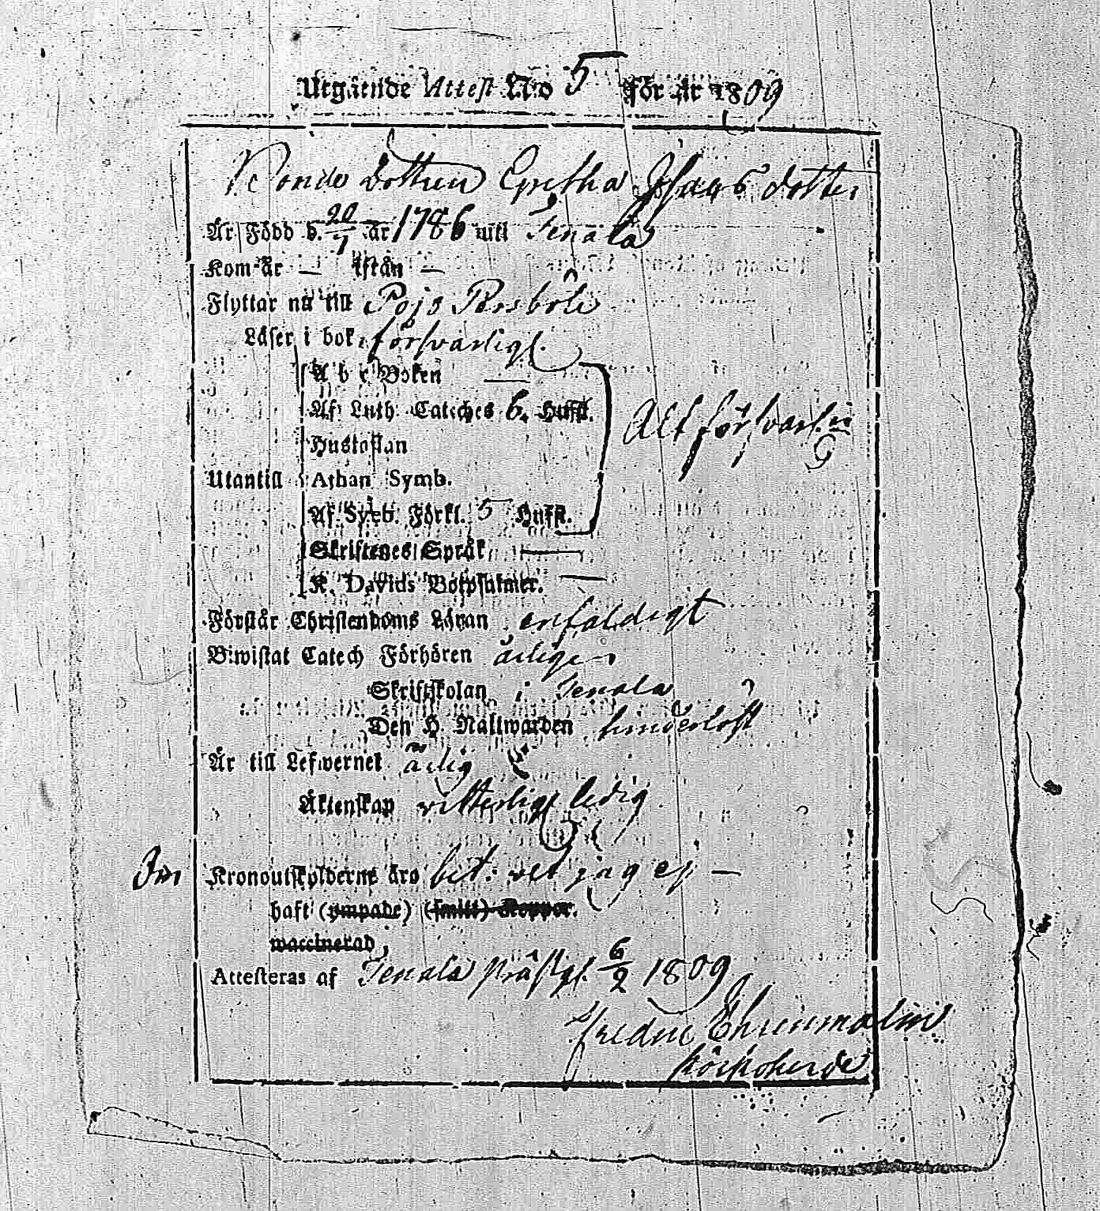 Utgående Attest N:o 5 för År 1809
Bonde dottren Gretha Isaacs dotter
Är Född d. 20/1 år 1786 uti Tenala
Kom år — ifrån —
Flyttar nu till Pojo
Läser i bok: försvarligt.
A b c Boken —
Af Luth Cateches 6. Hufst. Alt försvarlig
Hustaflan
Utantill Athan Symb.
Af Sveb. Förkl. 5 Hufst.
Skriftenes Språk —
K. Davids Botpsalmer. —
Förstår Christendoms Läran enfaldigt
Biwistat Catech Förhören årligen
Skriftskolan i Tenala
Den H Nattwarden hinderlöst
Är till Lefwernet ärlig
Äktenskap vitterligt ledig
Om Kronoutskylderne äro bet: vet jag ej —
haft (ympade) (smitt) Koppor.
waccinerad,
Attesteras af Tenala Prästgl. 6/2 1809
Fredric Ehrenmalm
Körkoherde